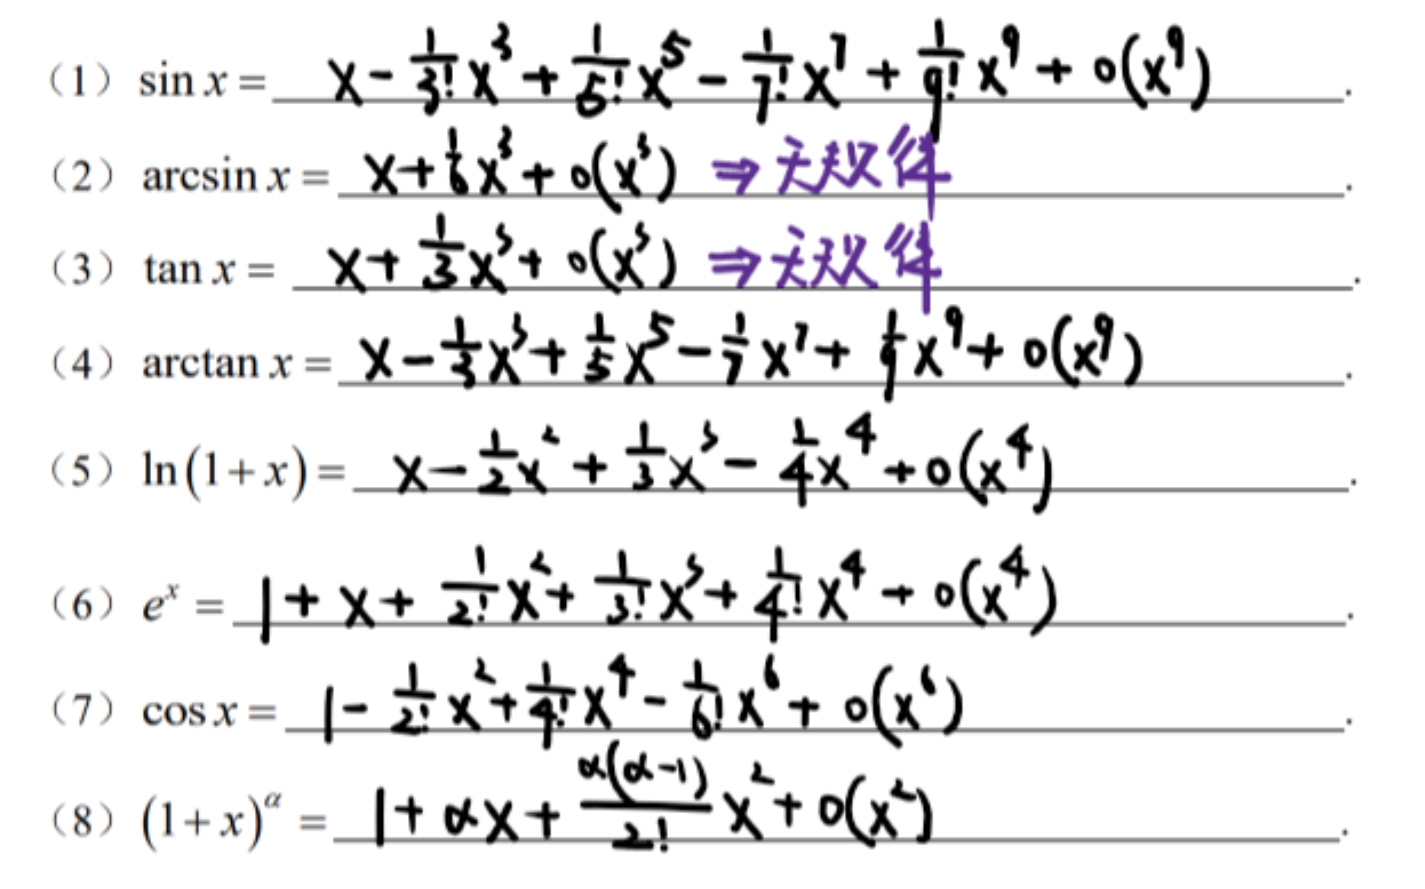 (1) sin x = x - 1/3! x³ + 1/5! x⁵ - 1/7! x⁷ + 1/9! x⁹ + o(x⁹).
(2) arcsin x = x + 1/6 x³ + o(x³) ⇒ 无规律.
(3) tan x = x + 1/3 x³ + o(x³) ⇒ 无规律.
(4) arctan x = x - 1/3 x³ + 1/5 x⁵ - 1/7 x⁷ + 1/9 x⁹ + o(x⁹).
(5) ln(1+x) = x - 1/2 x² + 1/3 x³ - 1/4 x⁴ + o(x⁴).
(6) eˣ = 1 + x + 1/2! x² + 1/3! x³ + 1/4! x⁴ + o(x⁴).
(7) cos x = 1 - 1/2! x² + 1/4! x⁴ - 1/6! x⁶ + o(x⁶).
(8) (1+x)^α = 1 + αx + α(α-1)/2! x² + o(x²).